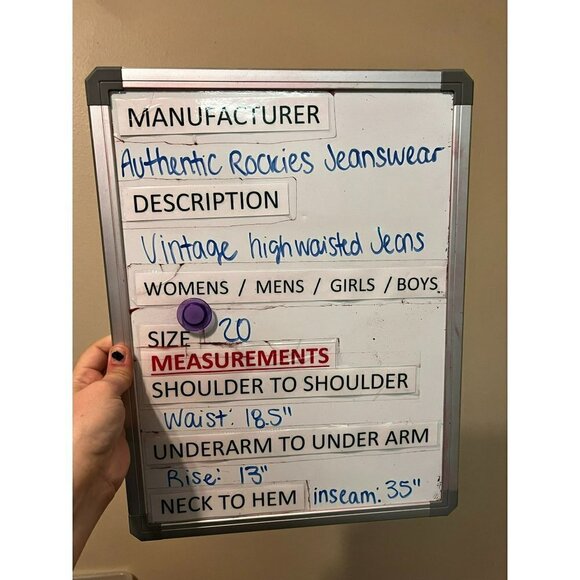 MANUFACTURER
Authentic Rockies Jeanswear
DESCRIPTION
Vintage highwaisted Jeans
WOMENS / MENS / GIRLS / BOYS
SIZE 20
MEASUREMENTS
SHOULDER TO SHOULDER
Waist: 18.5"
UNDERARM TO UNDER ARM
Rise: 13"
NECK TO HEM inseam: 35"